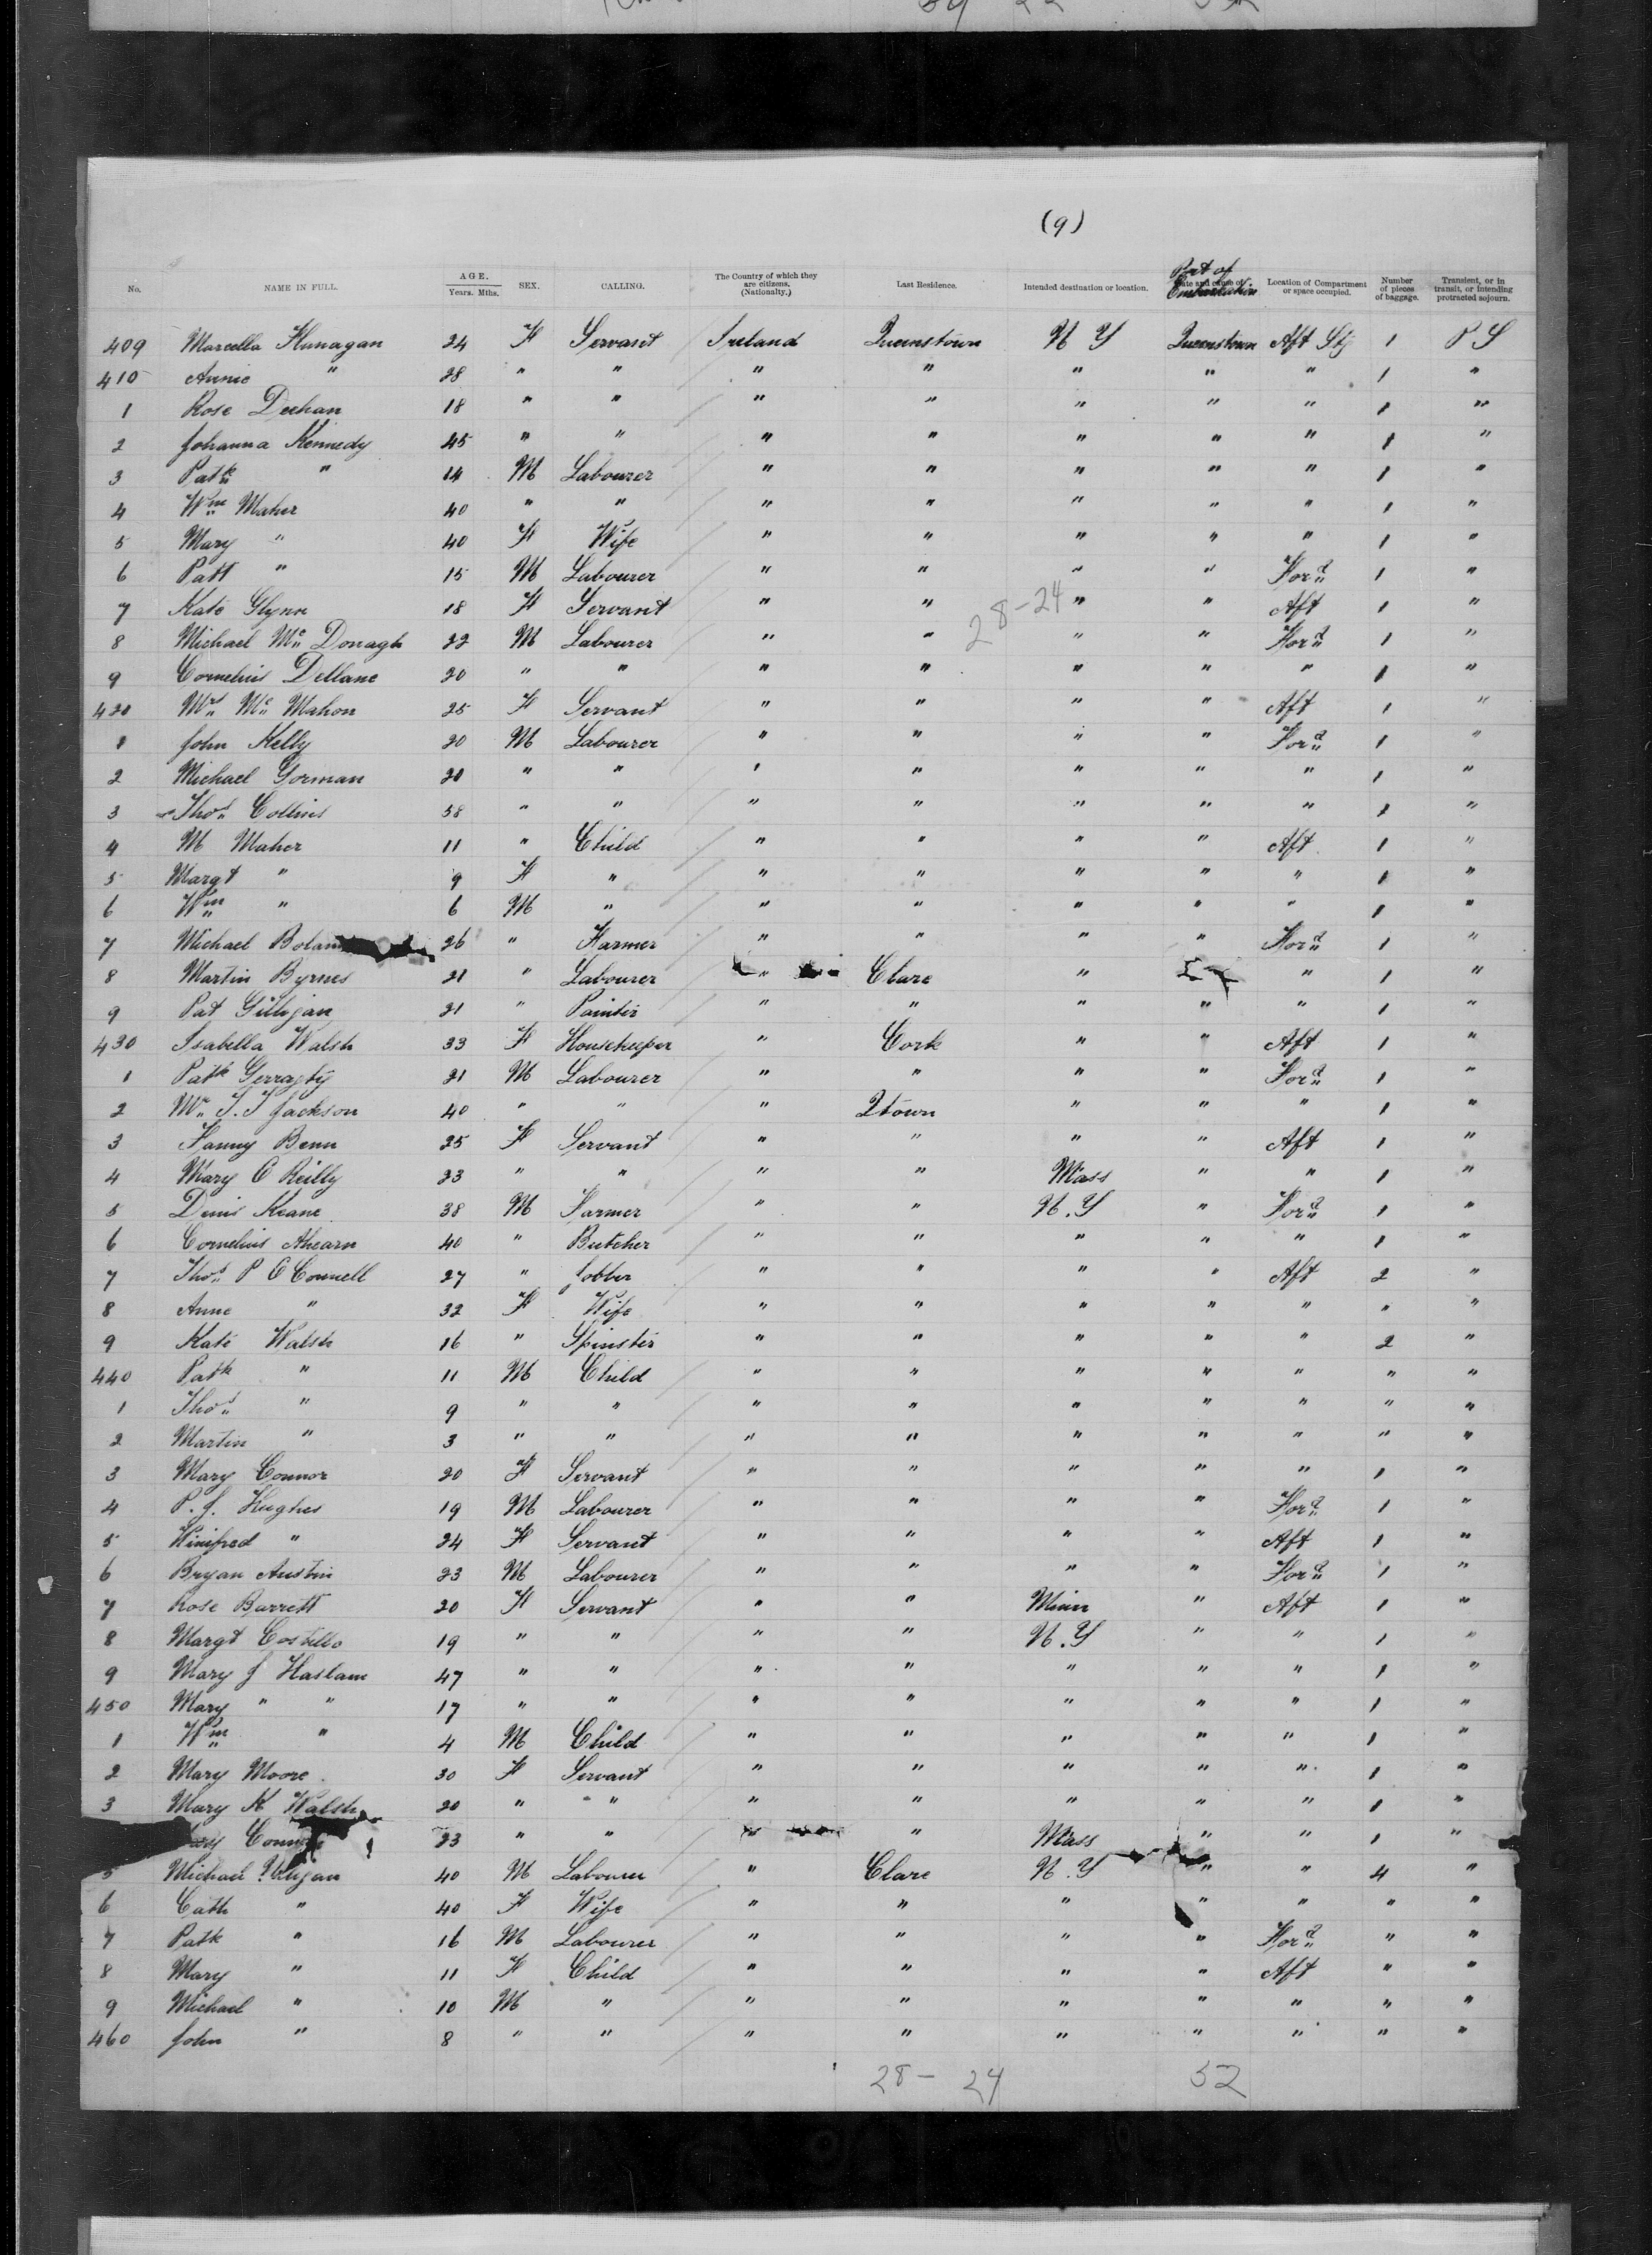 (9)
No. NAME IN FULL. AGE. Years. Mths. SEX. CALLING. The Country of which they are citizens. (Nationalty.) Last Residence. Intended destination or location. Port of Embarkation Location of Compartment or space occupied. Number of pieces of baggage. Transient, or in transit, or intending protracted sojourn.
409 Marcella Flunagan 24 F Servant Ireland Queenstown N Y Queenstown Aft Stg 1 P S
410 Annie " 28 " " " " " " " 1 "
1 Rose Deehan 18 " " " " " " " 1 "
2 Johanna Kennedy 45 " " " " " " " 1 "
3 Patk " 14 M Labourer " " " " " 1 "
4 Wm Maher 40 " " " " " " " 1 "
5 Mary " 40 F Wife " " " " " 1 "
6 Patt " 15 M Labourer " " " " Ford 1 "
7 Kate Glynn 18 F Servant " " " " Aft 1 "
28-24
8 Michael Mc Donagh 22 M Labourer " " " " Ford 1 "
9 Cornelius Dellane 20 " " " " " " " 1 "
420 Mrs Mc Mahon 25 F Servant " " " " Aft 1 "
1 John Kelly 20 M Labourer " " " " Ford 1 "
2 Michael Gorman 20 " " " " " " " 1 "
3 Thos Collins 58 " " " " " " " 1 "
4 M Maher 11 " Child " " " " Aft 1 "
5 Margt " 9 F " " " " " " 1 "
6 Wm " 6 M " " " " " " 1 "
7 Michael Bolan 26 " Farmer " " " " Ford 1 "
8 Martin Byrnes 21 " Labourer " Clare " " 1 "
9 Pat Gilligan 21 " Painter " " " " " 1 "
430 Isabella Walsh 33 F Housekeeper " Cork " " Aft 1 "
1 Patk Gerragty 21 M Labourer " " " " Ford 1 "
2 Mr T. J Jackson 40 " " " Qtown " " " 1 "
3 Fanny Benn 25 F Servant " " " " Aft 1 "
4 Mary O Reilly 23 " " " " Mass " " 1 "
5 Denis Keane 38 M Farmer " " N.Y " Ford 1 "
6 Cornelius Ahearn 40 " Butcher " " " " " 1 "
7 Thos P O Connell 27 " Jobber " " " " Aft 2 "
8 Anne " 32 F Wife " " " " " " "
9 Kate Walsh 16 " Spinster " " " " " 2 "
440 Patk " 11 M Child " " " " " " "
1 Thos " 9 " " " " " " " " "
2 Martin " 3 " " " " " " " " "
3 Mary Connor 20 F Servant " " " " " 1 "
4 P. J. Hughes 19 M Labourer " " " " Ford 1 "
5 Winifred " 24 F Servant " " " " Aft 1 "
6 Bryan Austin 23 M Labourer " " " " Ford 1 "
7 Rose Barrett 20 F Servant " " Minn " Aft 1 "
8 Margt Costello 19 " " " " N.Y " " 1 "
9 Mary J Haslam 47 " " " " " " " 1 "
450 Mary " " 17 " " " " " " " 1 "
1 Wm " 4 M Child " " " " " 1 "
2 Mary Moore 30 F Servant " " " " " 1 "
3 Mary K Walsh 20 " " " " " " " 1 "
23 " " " " Mass " " 1 "
5 Michael 40 M Labourer " Clare N.Y " " 4 "
6 Cath " 40 F Wife " " " " " " "
7 Patk " 16 M Labourer " " " " Ford " "
8 Mary " 11 F Child " " " " Aft " "
9 Michael " 10 M " " " " " " " "
460 John " 8 " " " " " " " " "
28- 24 52